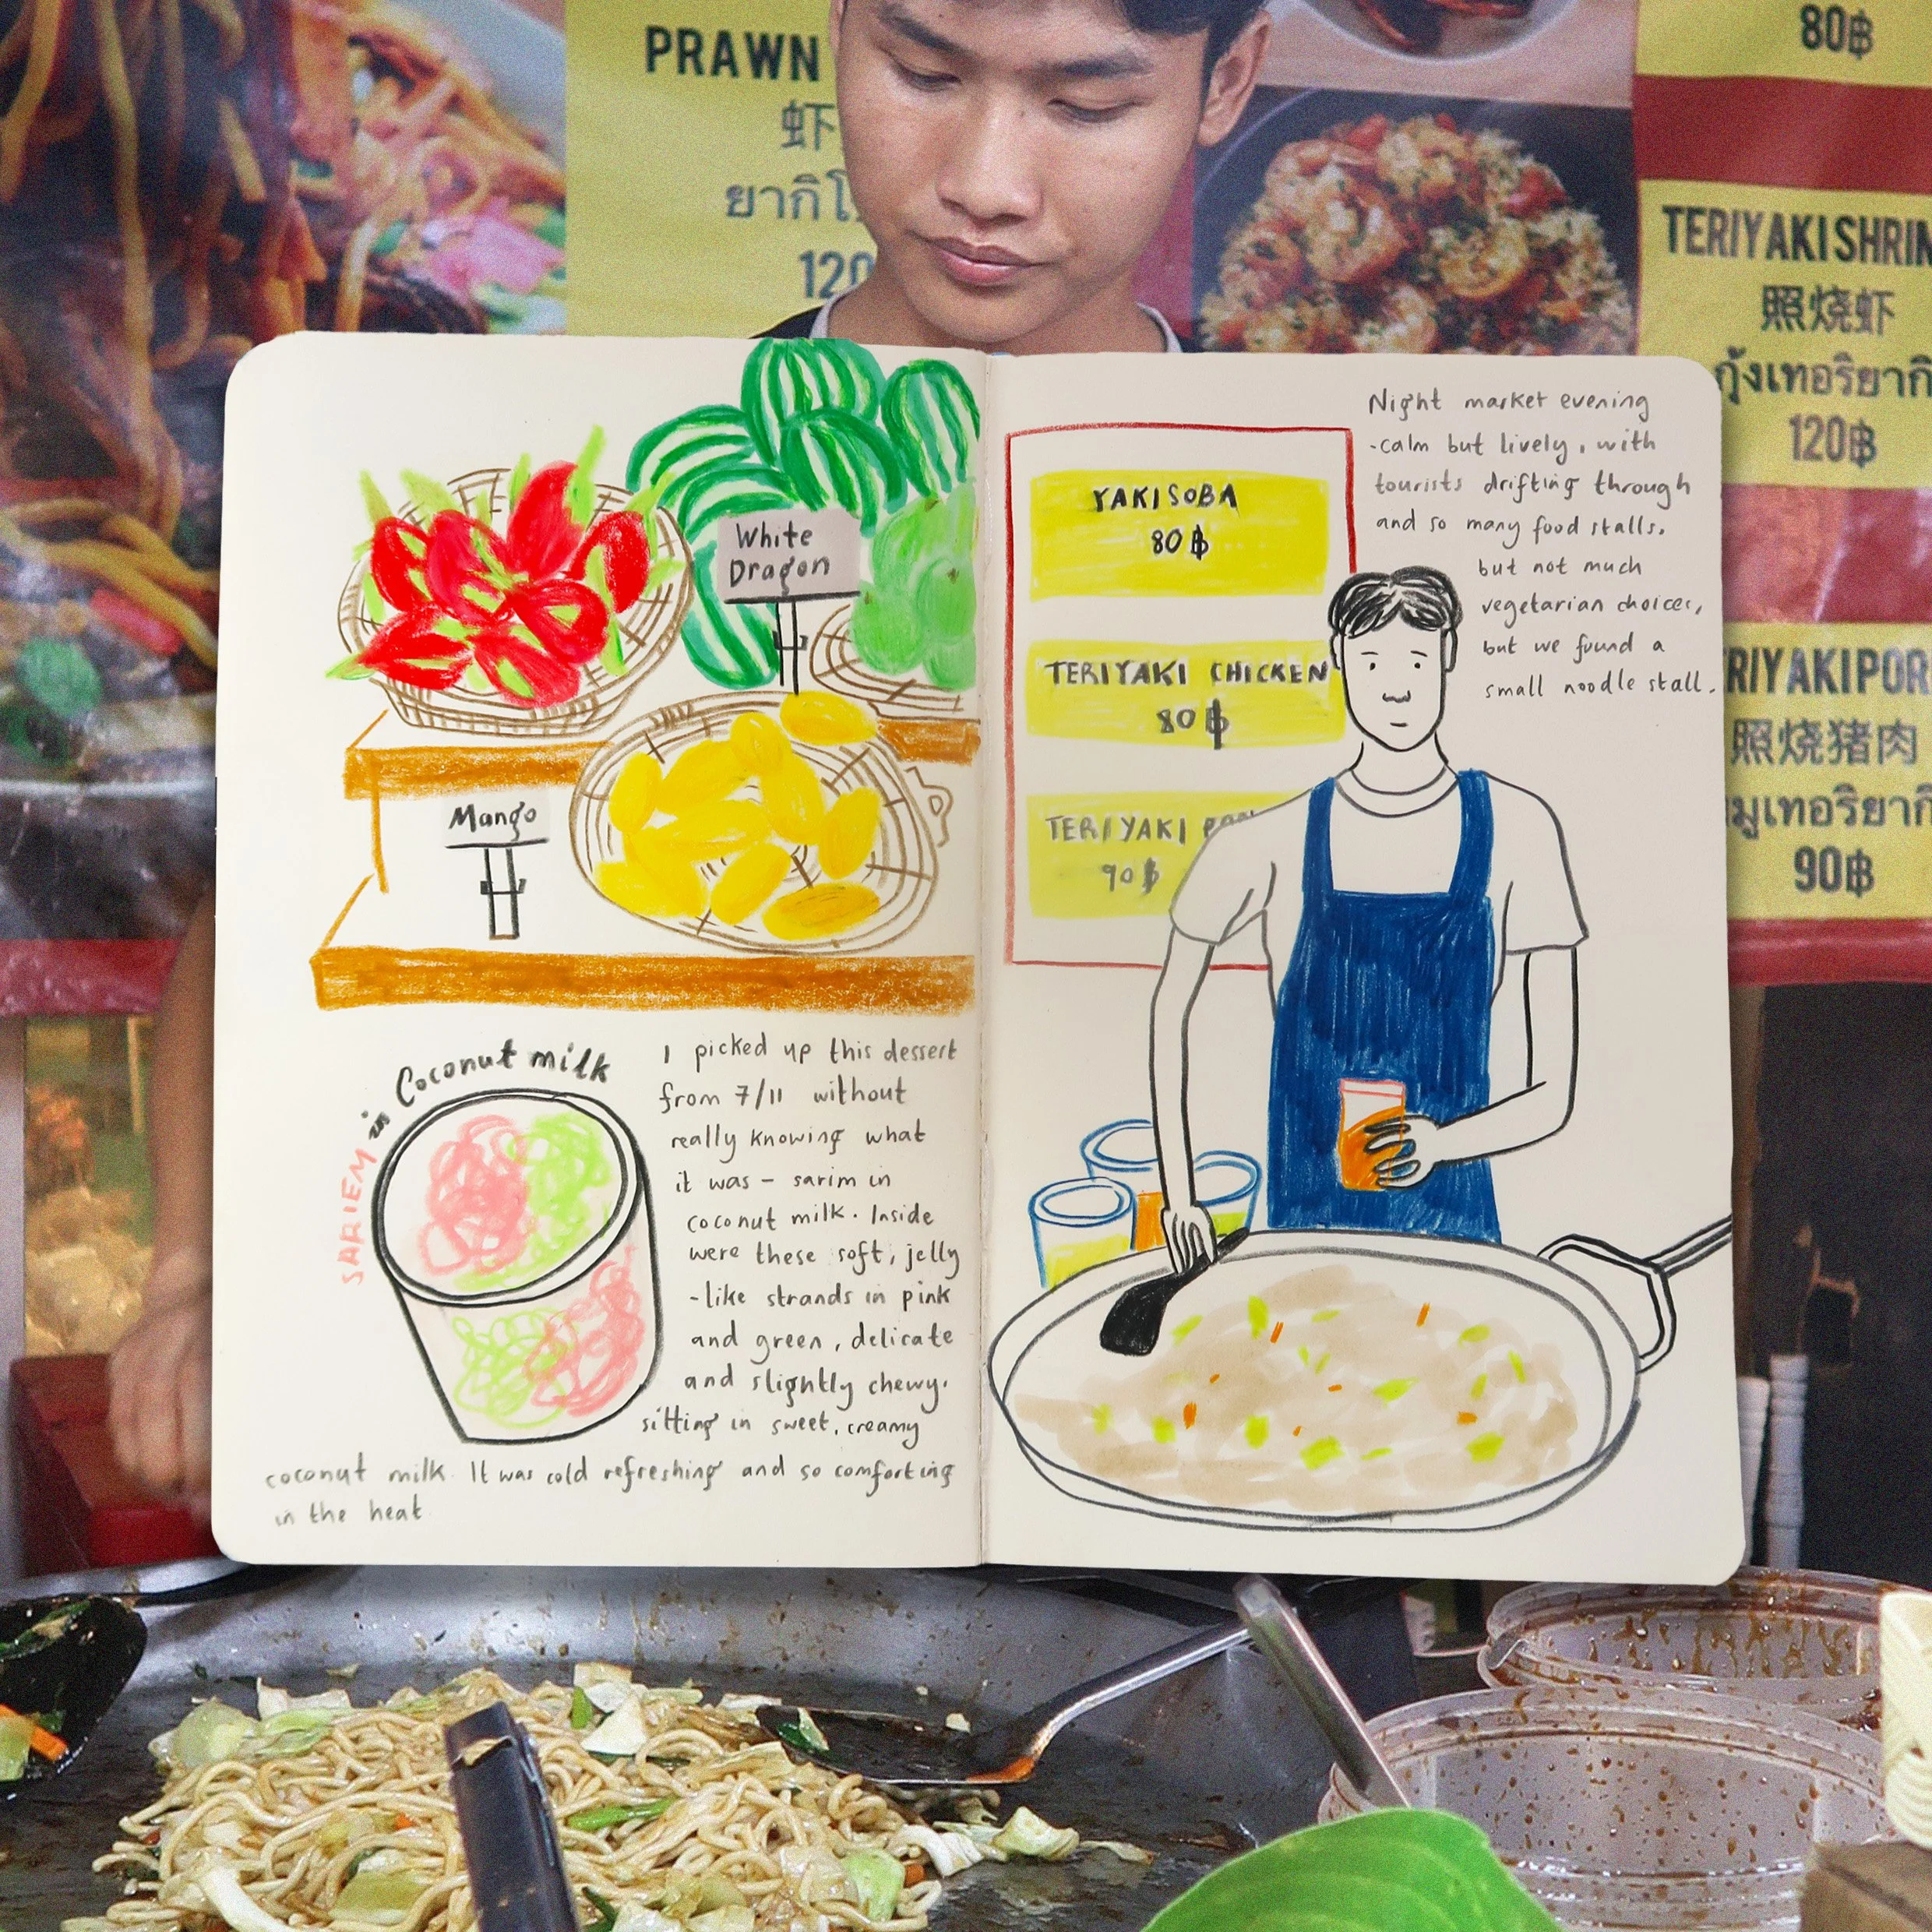 PRAWN
虾
120
80฿
TERIYAKI SHRIM
照烧虾
กุ้งเทอริยากิ
120฿
RIYAKI POR
照烧猪肉
มูเทอริยากิ
90฿
White
Dragon
Mango
SARIEM in Coconut milk
I picked up this dessert
from 7/11 without
really knowing what
it was - sarim in
coconut milk. Inside
were these soft, jelly
-like strands in pink
and green, delicate
and slightly chewy.
sitting in sweet, creamy
coconut milk. It was cold refreshing and so comforting
in the heat
YAKISOBA
80 ฿
TERIYAKI CHICKEN
80 ฿
TERIYAKI
90 ฿
Night market evening
-calm but lively, with
tourists drifting through
and so many food stalls.
but not much
vegetarian choices,
but we found a
small noodle stall.